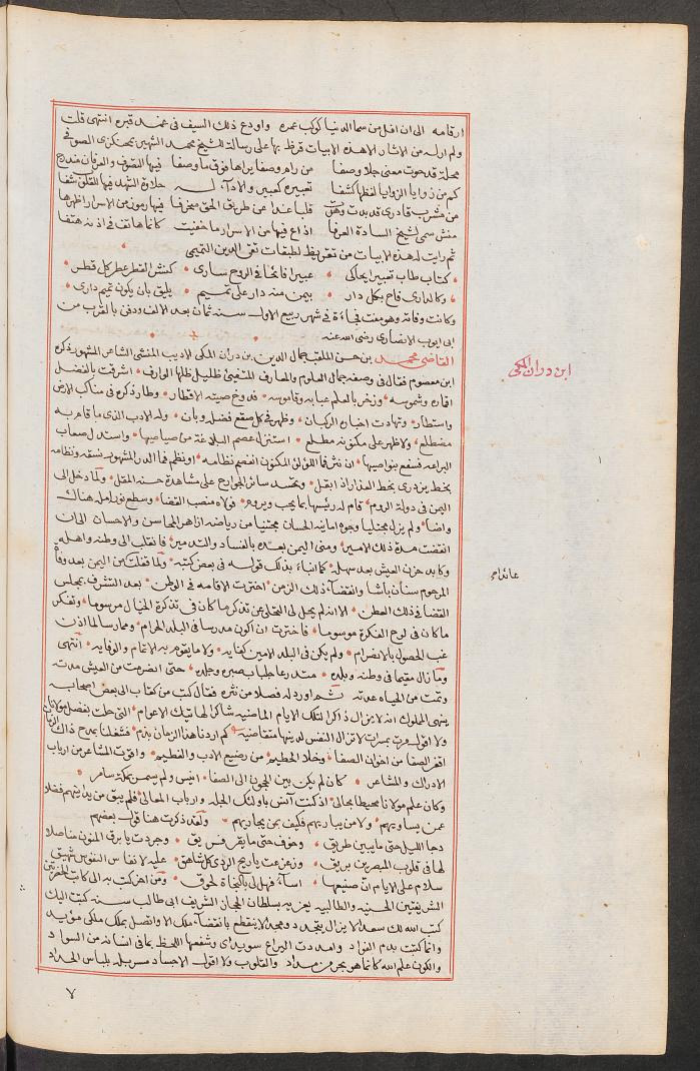 ارقامه الى ان افل من سما الدنيا كوكب عمره واودع ذلك السيف فى غمد قبره انتهى قلت
ولم ار له من الاشار الا هذه الابيات قرظ بها على رسالة للشيخ محمد الشهير الصوفى
مجلة قد حوت معنى جلا وصفا من رام وصفا يراها فوق ما وصفا فيها التصوف والعرفان مندرج
كم من زوايا الزوايا لفظها كشفا تعبيره كعبير والاداء له حلاوة الشهد فيها للقلب شفا
من مشرب قادرى قد بدت وهى قلبا غدا عن طريق الحق منحرفا فيها رموز من الاسرار اظهرها
منش سمى لشيخ السادة العرفا اذاع فيها من الاسرار ما خفيت كانما هاتف فى اذنه هتفا
ثم رايت له هذه الابيات من تقريظ لطبقات تقى الدين التميمى
كتاب طاب تعبيرا يحاكى عبيرا فائحا فى الروح سارى كنشر القطر عطر كل قطر
وكالدارى فاح بكل دار بيمن منه دار على تميم يليق بان يكون تميم دارى
وكانت وفاته وهو مفت فجاءة فى شهر ربيع الاول سنة ثمان بعد الالف ودفن بالقرب من
ابى ايوب الانصارى رضى الله عنه
القاضى محمد بن حسن الملقب جمال الدين بن دران المكى الاديب المنشى الشاعر المشهور ذكره
ابن معصوم فقال فى وصفه جمال العلوم والمعارف المتفيئ ظليل ظلها الوارف اشرقت بالفضل
اقماره وشموسه وزخر بالعلم عبابه وقاموسه فدوخ صيته الاقطار وطار ذكره فى مناكب الارض
واستطار وتهادت اخباره الركبان وظهر فى كل صقع فضله وبان وله الادب الذى ما قام به
مضطلع ولا ظهر على مكنونه مطلع استنزل عصم البلاغة من صياصيها واستذل صعاب
البراعه فسفع بنواصيها ان نثر فما اللؤلؤ المكنون انفصم نظامه او نظم فما الدر المشهور نسقه ونظامه
بخط يزدرى بخط العذار اذا بقل وتحسد سائر الجوارح على مشاهدة حسنه المقل ولما دخل الى
اليمن فى دولة الروم قام له رئيسها بما يحب ويروم فولاه منصب القضا وسطع نور امله هناك
واضا ولم يزل مجتليا وجوه امانيه الحسان مجتنيا من رياضه ازاهر المحاسن والاحسان الى ان
انقضت مدة ذلك الامير ومنى اليمن بعده بالفساد والتدمير فانقلب الى وطنه واهله
وكابد حزن العيش بعد سهله كما انباء بذلك قوله فى بعض كتبه ولما قفلت من اليمن بعد وفاة
المرحوم سنان باشا وانقضاء ذلك الزمن اخترت الاقامه فى الوطن بعد التشرف بمجلس
القضا فى ذلك العطن الا انه لم يحل لى التحلى عن تذكر ما كان فى تذكرة الخيال مرسوما وتفكر
ما كان فى لوح الفكرة موسوما فاخترت ان اكون مدرسا فى البلد الحرام وممارسا لما اذن
غب الحصول بالانصرام ولم يكن فى البلد الامين كفايه ولا ما يقوم به الاتمام والوفايه انتهى
وما زال مقيما فى وطنه وبلده متدرعا جلباب صبره وجلده حتى انصرمت من العيش مدته
وتمت من الحياه عدته ثم اورد له فصلا من نثره فقال كتب من كتاب الى بعض اصحابه
ينهى المملوك انه لا يزال ذاكرا لتلك الايام الماضيه شاكرا لهاتيك الاعوام التى حلت بفضل مولانا
ولا اقول مرت بمسرات لا تزال النفس لدينها متقاضيه كم اردنا هذا الزمان بذم فشغلنا بمدح ذاك الزمان
اقفر الصفا من اخوان الصفا وخلا الحطيم من رضيع الادب والفطيم واقوت المشاعر من ارباب
الادراك والمشاعر كان لم يكن بين الحجون الى الصفا انيس ولم يسمر بمكة سامر
وكان علم مولانا محيطا بحالى اذ كنت آنس باولئك الجله وارباب المعالى فلم يبق من يدانيهم فضلا
عن يساويهم ولا من يباريهم فكيف بمن يجاريهم ولقد ذكرت هنا قول بعضهم
دجا الليل حتى ما يبين طريق وخوف حتى ما يقر فريق وجردت يا برق المنون مناصلا
لها فى قلوب المبصرين بريق وزعزعت يا ريح الردى كل شاهق عليه لانفاس النفوس شهيق
سلام على الايام ان صنيعها اساء فهل لى بالنجاة لحوق ومن اخر كتب به الى كاتب الحضرتين
الشريفتين الحسنيه والطالبيه يعزيه بسلطان الحجاز الشريف ابى طالب سنه كتبت اليك
كتب الله لك سعدا لا يزال يتجدد ومجدا لا ينقطع بانقضاء ملك الا واتصل بملك ملكى مؤيد
وانما كتبت بدم الفواد وامددت اليراع سويداى وشفعها اللحظ بما فى انسانه من السواد
والكون علم الله كانما هو بحر من مداد والقلوب ولا اقول الاجساد مسربله بلباس الحداد
ابن دران المكى
٧